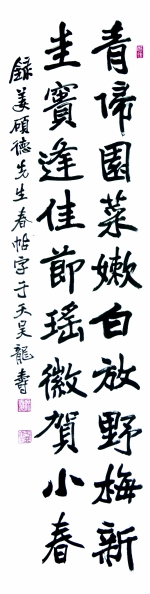 青帰園菜嫩白放野梅新
圭竇逢佳節瑤徽賀小春
錄姜碩德先生春帖字于天吴龍壽